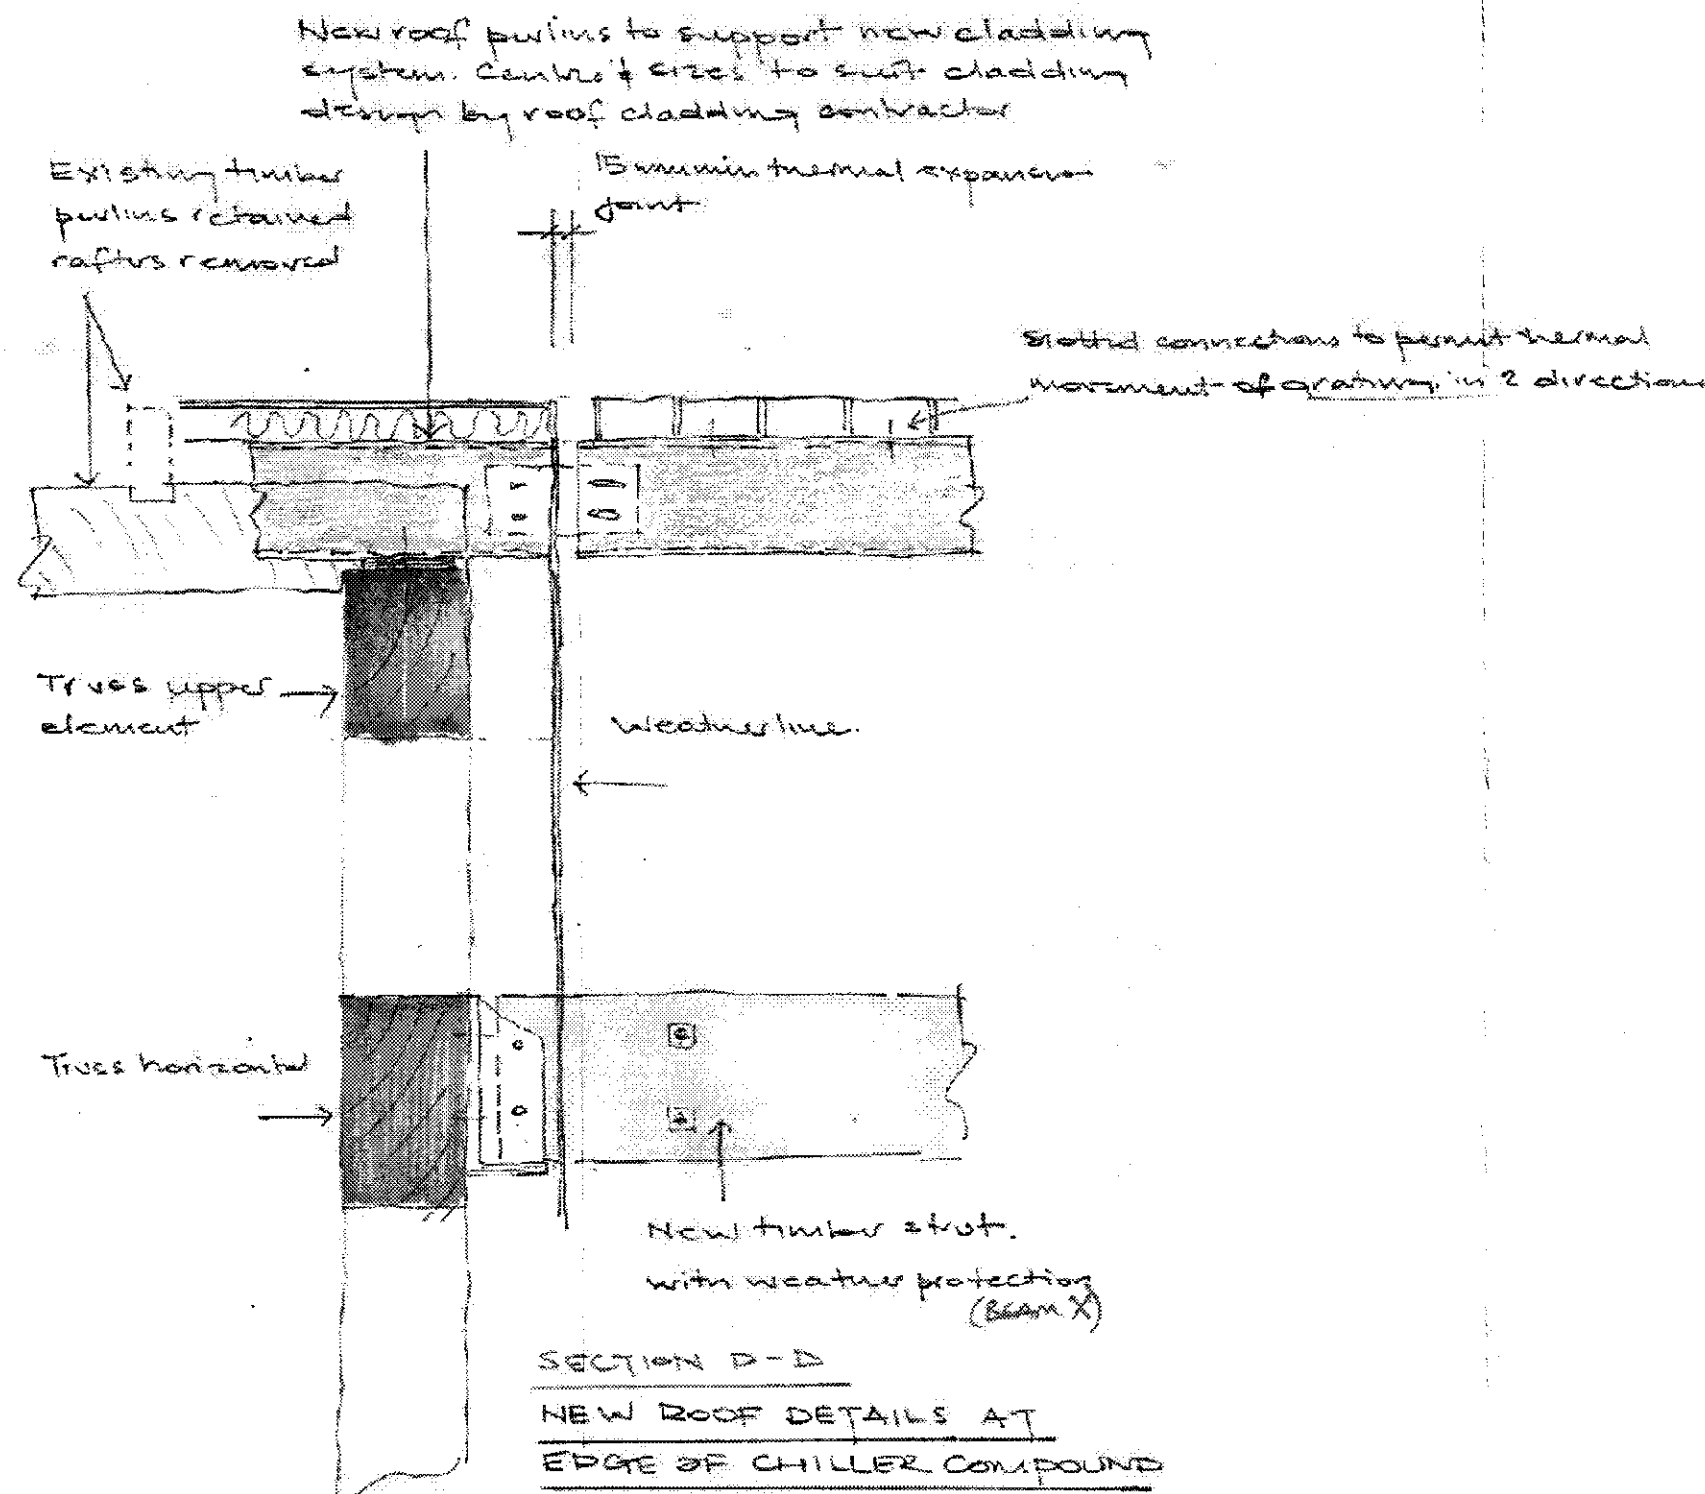 New roof purlins to support new cladding
system. Centre's & sizes to suit cladding
design by roof cladding contractor
Existing timber
purlins retained
rafters removed
15mm min thermal expansion
joint
Slotted connections to permit thermal
movement of grating in 2 directions
Truss upper
element
Weatherline.
Truss horizontal
New timber strut.
with weather protection
(BEAM X)
SECTION D-D
NEW ROOF DETAILS AT
EDGE OF CHILLER COMPOUND